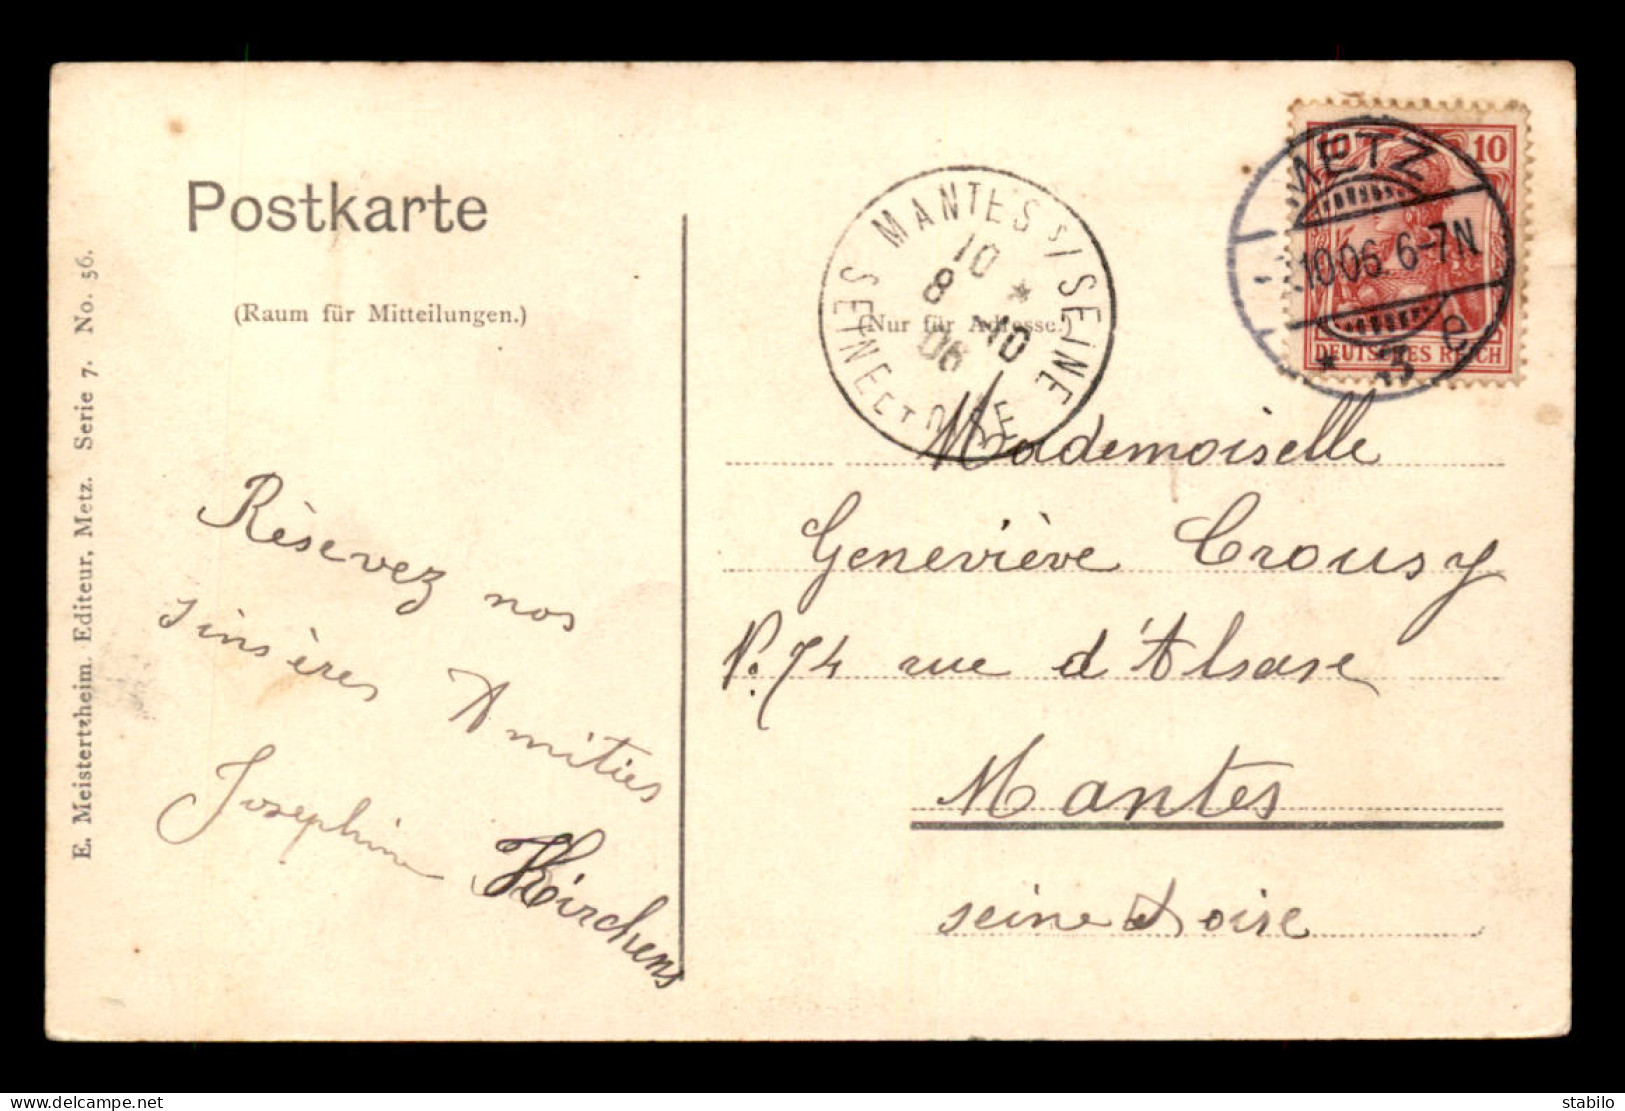 Postkarte
(Raum für Mitteilungen.)
(Nur für Adresse.)
E. Meistertzheim. Editeur, Metz. Serie 7. No. 56.
MANTES S/ SEINE
SEINE ET OISE
10 *
8 10
06
METZ
10 06 6-7N
* 3 e
10
DEUTSCHES REICH
Résevez nos
sinsères Amities
Josephine Kirchens
Mademoiselle
Geneviève Crousy
No. 74 rue d'Alsase
Mantes
seine et oise
www.delcampe.net
stabilo